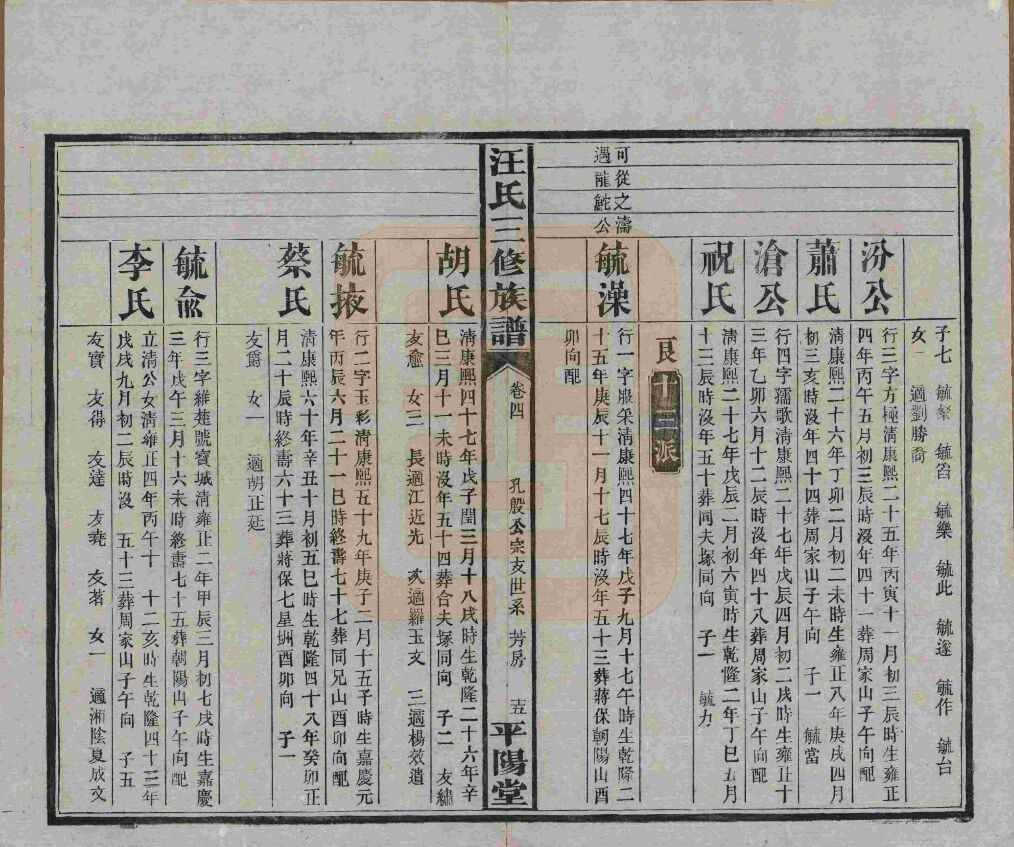 子七　毓粲　毓㕣　毓樂　毓此　毓遂　毓作　毓台
女一　適劉勝喬
汾公
行三字方極清康熙二十五年丙寅十一月初三辰時生雍正
四年丙午五月初三辰時沒年四十一葬周家山子午向配
蕭氏
清康熙二十六年丁卯二月初二未時生雍正八年庚戌四月
初三亥時沒年四十四葬周家山子午向　子一　毓當
滄公
行四字孺歌清康熙二十七年戊辰四月初二戌時生雍正十
三年乙卯六月十二辰時沒年四十八葬周家山子午向配
祝氏
清康熙二十七年戊辰二月初六寅時生乾隆二年丁巳五月
十三辰時沒年五十葬同夫塚同向　子一　毓力
良
十三派
可從之濤
遇龍鮀公
毓澡
行一字服采清康熙四十七年戊子九月十七午時生乾隆二
十五年庚辰十一月十七辰時沒年五十三葬蔣保朝陽山酉
卯向配
汪氏三修族譜
卷四
孔殷公宗支世系　芳房
十五
平陽堂
胡氏
清康熙四十七年戊子閏三月十八戌時生乾隆二十六年辛
巳三月十一未時沒年五十四葬合夫塚同向　子二　友繡
友愈　女三　長適江近光　次適羅玉文　三適楊效遺
毓掖
行二字玉彩清康熙五十九年庚子二月十五子時生嘉慶元
年丙辰六月二十一巳時終壽七十七葬同兄山酉卯向配
蔡氏
清康熙六十年辛丑十月初五巳時生乾隆四十八年癸卯正
月二十辰時終壽六十三葬蔣保七星坳酉卯向　子一
友爵　女一　適胡正廷
毓兪
行三字維楚號寶城清雍正二年甲辰三月初七戌時生嘉慶
三年戊午三月十六未時終壽七十五葬朝陽山子午向配
李氏
立清公女清雍正四年丙午十　十二亥時生乾隆四十三年
戊戌九月初二辰時沒　五十三葬周家山子午向　子五
友實　友得　友達　友堯　友茗　女一　適湘陰夏成文